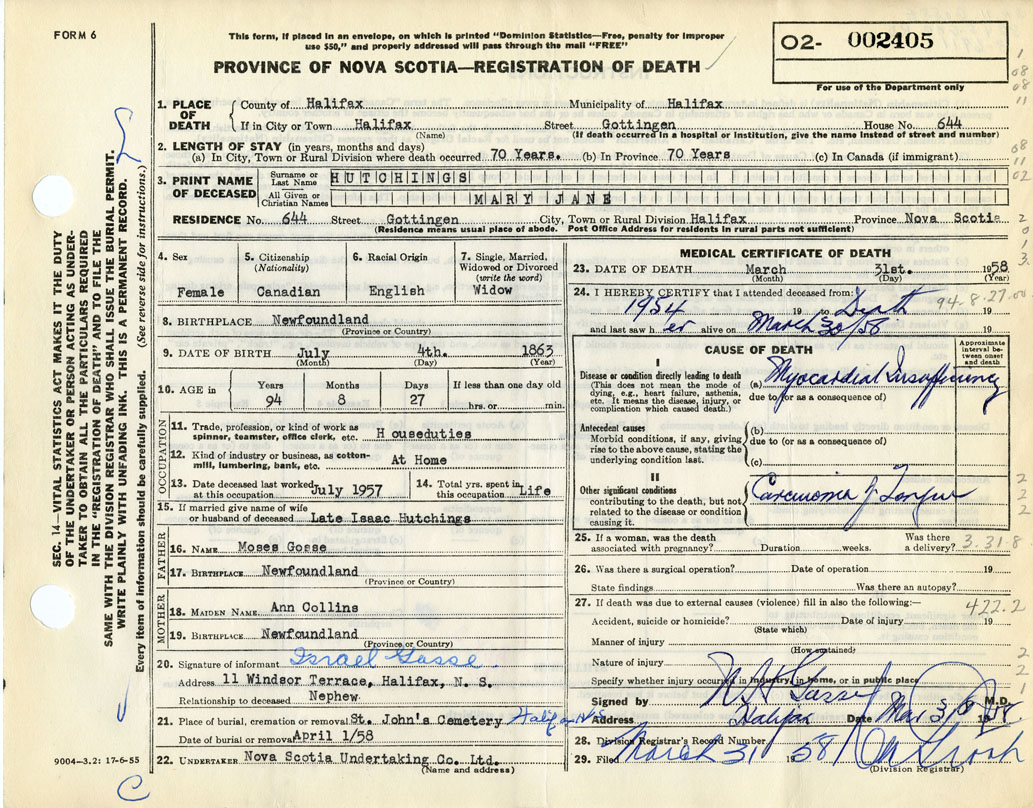 FORM 6
This form, if placed in an envelope, on which is printed "Dominion Statistics—Free, penalty for improper
use $50," and properly addressed will pass through the mail "FREE"
PROVINCE OF NOVA SCOTIA—REGISTRATION OF DEATH
O2- 002405
For use of the Department only
1. PLACE OF DEATH
County of Halifax Municipality of Halifax
If in City or Town Halifax Street Gottingen House No. 644
(Name) (If death occurred in a hospital or institution, give name instead of street and number)
2. LENGTH OF STAY (in years, months and days)
(a) In City, Town or Rural Division where death occurred 70 Years. (b) In Province 70 Years (c) In Canada (if immigrant)
3. PRINT NAME OF DECEASED
Surname or Last Name HUTCHINGS
All Given or Christian Names MARY JANE
RESIDENCE No. 644 Street Gottingen City, Town or Rural Division Halifax Province Nova Scotia
(Residence means usual place of abode. Post Office Address for residents in rural parts not sufficient)
4. Sex
Female
5. Citizenship
(Nationality)
Canadian
6. Racial Origin
English
7. Single, Married,
Widowed or Divorced
(write the word)
Widow
8. BIRTHPLACE Newfoundland
(Province or Country)
9. DATE OF BIRTH July 4th. 1863
(Month) (Day) (Year)
10. AGE in Years Months Days If less than one day old
94 8 27 hrs. or min.
OCCUPATION
11. Trade, profession, or kind of work as
spinner, teamster, office clerk, etc. Houseduties
12. Kind of industry or business, as cotton-
mill, lumbering, bank, etc. At Home
13. Date deceased last worked
at this occupation July 1957
14. Total yrs. spent in
this occupation Life
15. If married give name of wife
or husband of deceased Late Isaac Hutchings
FATHER
16. NAME Moses Gosse
17. BIRTHPLACE Newfoundland
(Province or Country)
MOTHER
18. MAIDEN NAME Ann Collins
19. BIRTHPLACE Newfoundland
(Province or Country)
20. Signature of informant Israel Gosse
Address 11 Windsor Terrace, Halifax, N. S.
Relationship to deceased Nephew
21. Place of burial, cremation or removal St. John's Cemetery Halifax NS
Date of burial or removal April 1/58
22. UNDERTAKER Nova Scotia Undertaking Co. Ltd.
(Name and address)
9004-3.2: 17-6-55
MEDICAL CERTIFICATE OF DEATH
23. DATE OF DEATH March 31st. 1958
(Month) (Day) (Year)
24. I HEREBY CERTIFY that I attended deceased from:
1954 19 to Death 19
94-8-27.00
and last saw her alive on March 30/58 19
CAUSE OF DEATH
Approximate
interval be-
tween onset
and death
I
Disease or condition directly leading to death
(This does not mean the mode of
dying, e.g., heart failure, asthenia,
etc. It means the disease, injury, or
complication which caused death.)
(a) Myocardial Insufficiency
due to (or as a consequence of)
Antecedent causes
Morbid conditions, if any, giving
rise to the above cause, stating the
underlying condition last.
(b)
due to (or as a consequence of)
(c)
II
Other significant conditions
contributing to the death, but not
related to the disease or condition
causing it.
Carcinoma of Tongue
25. If a woman, was the death
associated with pregnancy? Duration weeks. Was there
a delivery?
3.31.8
26. Was there a surgical operation? Date of operation 19
State findings Was there an autopsy?
27. If death was due to external causes (violence) fill in also the following:—
422.2
Accident, suicide or homicide? Date of injury 19
(State which)
Manner of injury
(How sustained)
Nature of injury
Specify whether injury occurred in industry, in home, or in public place
Signed by M.D.
Address Halifax Date Mar 19 58
28. Division Registrar's Record Number
29. Filed March 31 1958
(Division Registrar)
SEC. 14—VITAL STATISTICS ACT MAKES IT THE DUTY
OF THE UNDERTAKER OR PERSON ACTING AS UNDER-
TAKER TO OBTAIN ALL THE PARTICULARS REQUIRED
IN THE "REGISTRATION OF DEATH" AND TO FILE THE
SAME WITH THE DIVISION REGISTRAR WHO SHALL ISSUE THE BURIAL PERMIT.
WRITE PLAINLY WITH UNFADING INK. THIS IS A PERMANENT RECORD.
Every item of information should be carefully supplied. (See reverse side for instructions.)